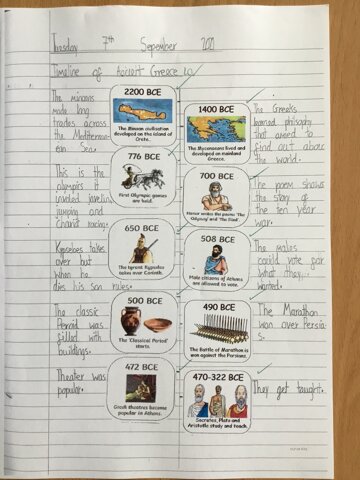 Tuesday 7th September 2021
Timeline of Ancient Greece LO
2200 BCE
The Minoan civilisation
developed on the island of
Crete.
The minoans
made long
trades across
the Mediterran-
ean Sea.
1400 BCE
The Mycenaeans lived and
developed on mainland
Greece.
The Greeks
learned philosophy
that aimed to
find out about
the world.
776 BCE
First Olympic games
are held.
This is the
olympics it
involed javelin
jumping and
chariot racing.
700 BCE
Homer writes the poems 'The
Odyssey' and 'The Iliad'.
The poem shows
the story of
the ten year
war.
650 BCE
The tyrant Kypselos
takes over Corinth.
Kypselos takes
over but
when he
dies his son rules.
508 BCE
Male citizens of Athens
are allowed to vote.
The males
could vote for
what they
wanted.
500 BCE
The 'Classical Period'
starts.
The classic
Period was
filled with
buildings.
490 BCE
The Battle of Marathon is
won against the Persians.
The Marathon
won over Persia
s.
472 BCE
Greek theatres become
popular in Athens.
Theater was
popular.
470-322 BCE
Socrates, Plato and
Aristotle study and teach.
They get taught.